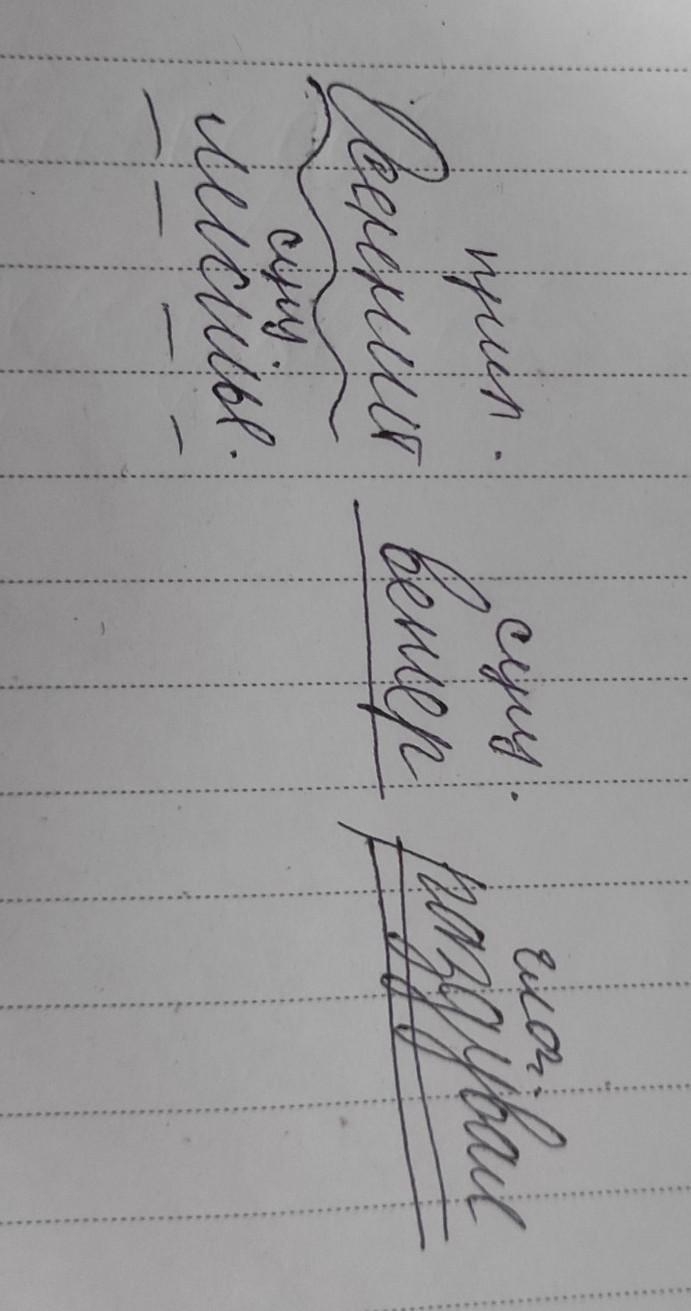 прил. сущ. глаг.
Осенний ветер раздувал
сущ
листья.